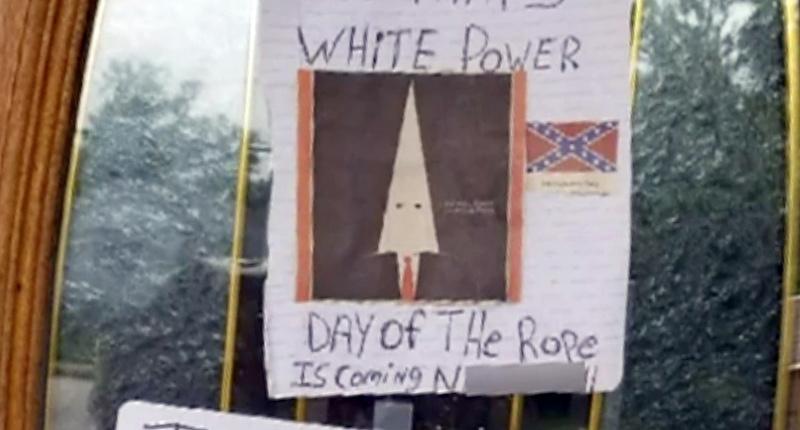 WHITE POWER
DAY of THe Rope
Is Coming N